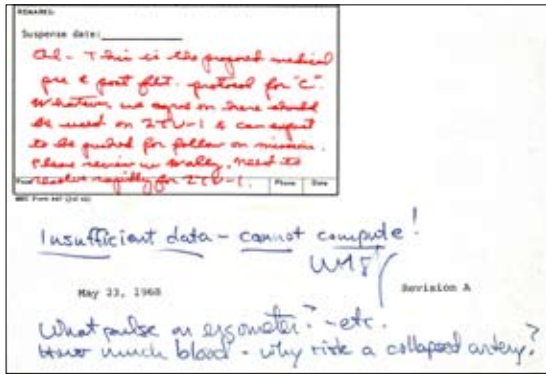 REMARKS:
Suspense date:
This is the proposed medical
pre & post flt. protocol for "C".
Whatever we agree on here should
be used on 2TV-1 & can expect
to be pushed for follow on mission.
Please review w/ Wally, need to
resolve rapidly for 2TV-1.
Phone Date
Insufficient data - cannot compute!
WMS
May 23, 1968
Revision A
What pulse on ergometer? - etc.
How much blood - why risk a collapsed artery?